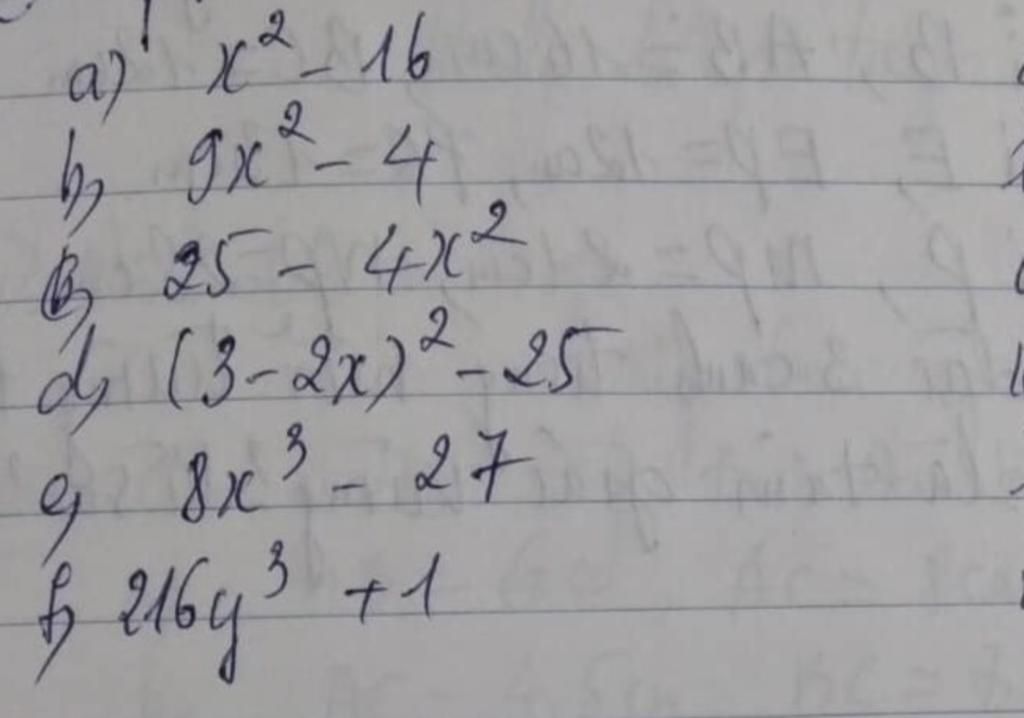 a) x² - 16
b, 9x² - 4
c, 25 - 4x²
d, (3 - 2x)² - 25
e, 8x³ - 27
f, 216y³ + 1